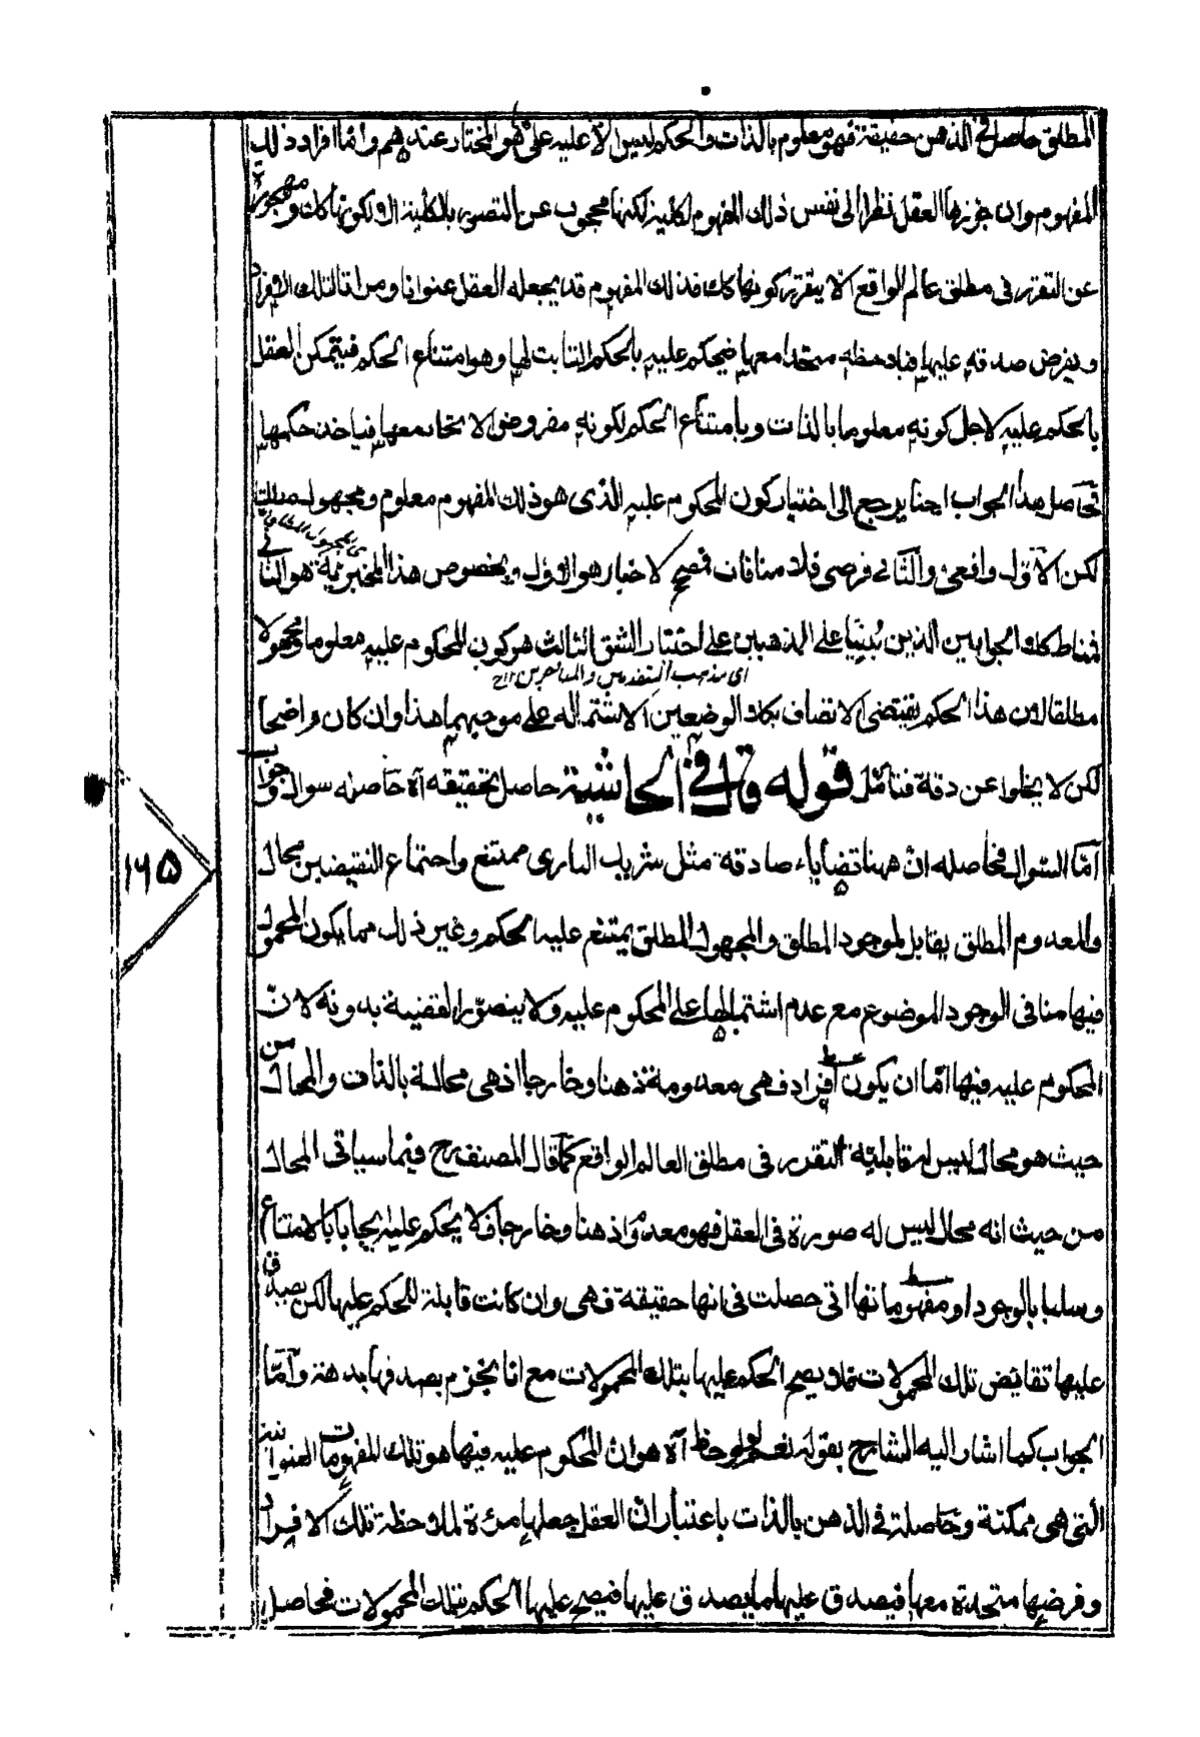 المطلق حاصل في الذهن حقيقة فهو معلوم بالذات والحكم ليس الا عليه على هو المختار عندهم واما افراد ذلك
المفهوم وان جوزها العقل نظرا الى نفس ذلك المفهوم لكليته لكنها محجوب عن التصور بالكلية اذ لا كونها كك ومهجورة
عن التقرر في مطلق عالم الواقع اذ لا يتقرر كونها كك فذلك المفهوم قد يجعله العقل عنوانا ومرأتا لتلك الافراد
ويفرض صدقه عليها فيلاحظه متحدا معها فيحكم عليه بالحكم الثابت لها وهو امتناع الحكم فيتمكن العقل
بالحكم عليه لاجل كونه معلوما بالذات وبامتناع الحكم لكونه مفروض الاتحاد معها فياخذ حكمها
فحاصل هذا الجواب ايضا يرجع الى اختيار كون المحكوم عليه الذى هو ذلك المفهوم معلوم ومجهول مطلق
اى المجهول المطلق
لكن الاول واقعى والثانى فرضى فلا منافات فمصحح الاخبار هو الاول وبخصوص هذا المخبرية هو الثانى
فمناط كلا الجوابين الذين بُنِيَا على المذهبين على اختيار الشق الثالث هو كون المحكوم عليه معلوما ومجهولا
اى مذهب المتقدمين والمتاخرين ١٢
مطلقا لان هذا الحكم يقتضى الاتصاف بكلا الوضعين لاشتماله على موجبهما هذا وان كان واضحا
لكن لا يخلوا عن دقة فتأمل قوله قال في الحاشية حاصل تحقيقه آه حاصله سوال وجواب
اما السوال فحاصله ان ههنا قضاياء صادقة مثل شريك البارى ممتنع واجتماع النقيضين محال
والمعدوم المطلق يقابل لموجود المطلق والمجهول المطلق يمتنع عليه الحكم وغير ذلك مما يكون المحمول
فيها منافى الوجود الموضوع مع عدم اشتمالها على المحكوم عليه ولا يتصور القضية بدونه لان
المحكوم عليه فيها اما ان يكون افراد فهى معدومة ذهنا وخارجا اذ هى محالة بالذات والمحال من
حيث هو محال ليس له قابلية التقدر في مطلق العالم الواقع كما قال المصنف رح فيما سياتى المحال
من حيث انه محال ليس له صورة في العقل فهو معدوم ذهنا وخارجا فلا يحكم عليه ايجابا بالامتناع
وسلبا بالوجود او مفهوماتها التى حصلت في انها حقيقة فهى وان كانت قابلة للحكم عليها لكن يصدق
عليها نقائض تلك المحمولات فلا يصح الحكم عليها بتلك المحمولات مع انا نجزم بصدقها بداهة واما
الجواب كما اشار اليه الشارح بقوله نعم لو لوحظ آه هو ان المحكوم عليه فيها هو تلك المفهومات العنوانية
التى هى ممكنة وحاصلة في الذهن بالذات باعتبار ان العقل جعلها مرءة لملاحظة تلك الافراد
وفرضها متحدة معها فيصدق عليها ما يصدق عليها فيصح عليها الحكم بتلك المحمولات فحاصل
١٦٥